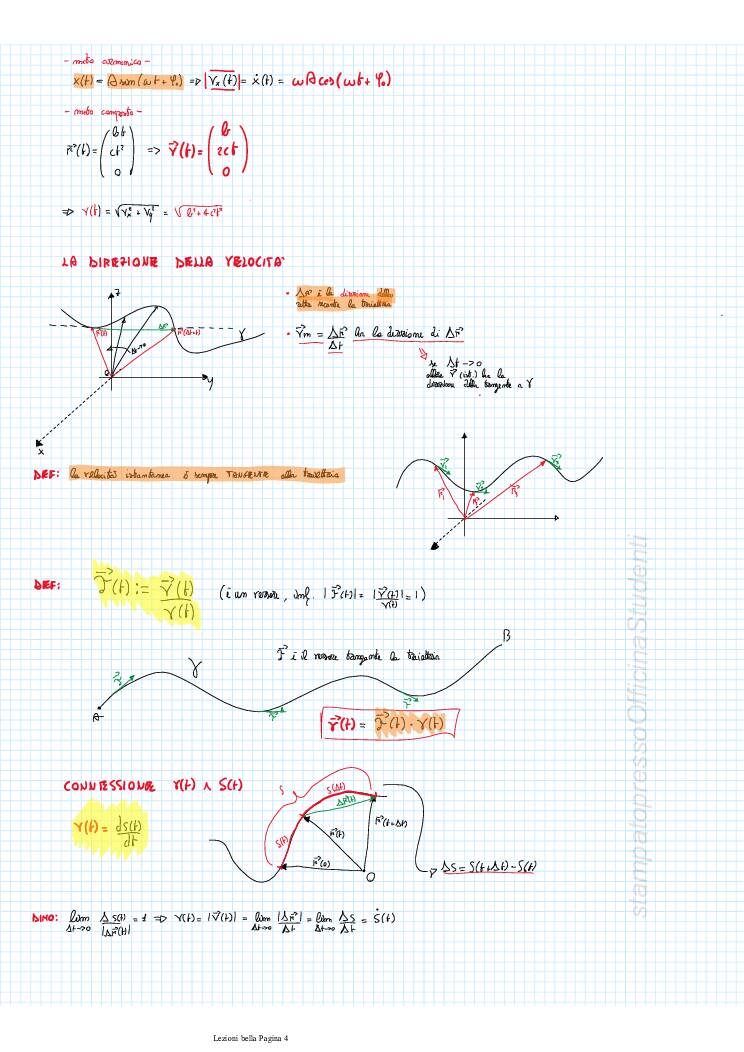 - moto armonico -
x(t) = A sin(ωt + φ₀) => |Vx(t)| = ẋ(t) = ωA cos(ωt + φ₀)
- moto composto -
r⃗(t) = (bt ct² 0) => V⃗(t) = (b 2ct 0)
=> v(t) = √Vx² + Vy² = √b² + 4c²t²
LA DIREZIONE DELLA VELOCITA'
• Δr⃗ è la direzione della
retta secante la traiettoria
• V⃗m = Δr⃗/Δt ha la direzione di Δr⃗
se Δt -> 0
allora V⃗ (ist.) ha la
direzione della tangente a γ
z
r⃗(t)
Δr⃗
γ
O
y
x
DEF: la velocità istantanea è sempre TANGENTE alla traiettoria
DEF: T⃗(t) := V⃗(t)/v(t) (è un versore, inf. |T⃗(t)| = |V⃗(t)/v(t)| = 1)
B
T⃗ è il versore tangente la traiettoria
γ
A
V⃗(t) = T⃗(t) · v(t)
CONNESSIONE v(t) ∧ S(t)
v(t) = ds(t)/dt
S
S(Δt)
Δr⃗(t)
S(t)
r⃗(t)
r⃗(t+Δt)
r⃗(0)
O
ΔS = S(t+Δt) - S(t)
DIMO: lim Δt->0 ΔS(t)/|Δr⃗(t)| = 1 => v(t) = |V⃗(t)| = lim Δt->0 |Δr⃗|/Δt = lim Δt->0 ΔS/Δt = Ṡ(t)
stampatopressoOfficinaStudenti
Lezioni bella Pagina 4